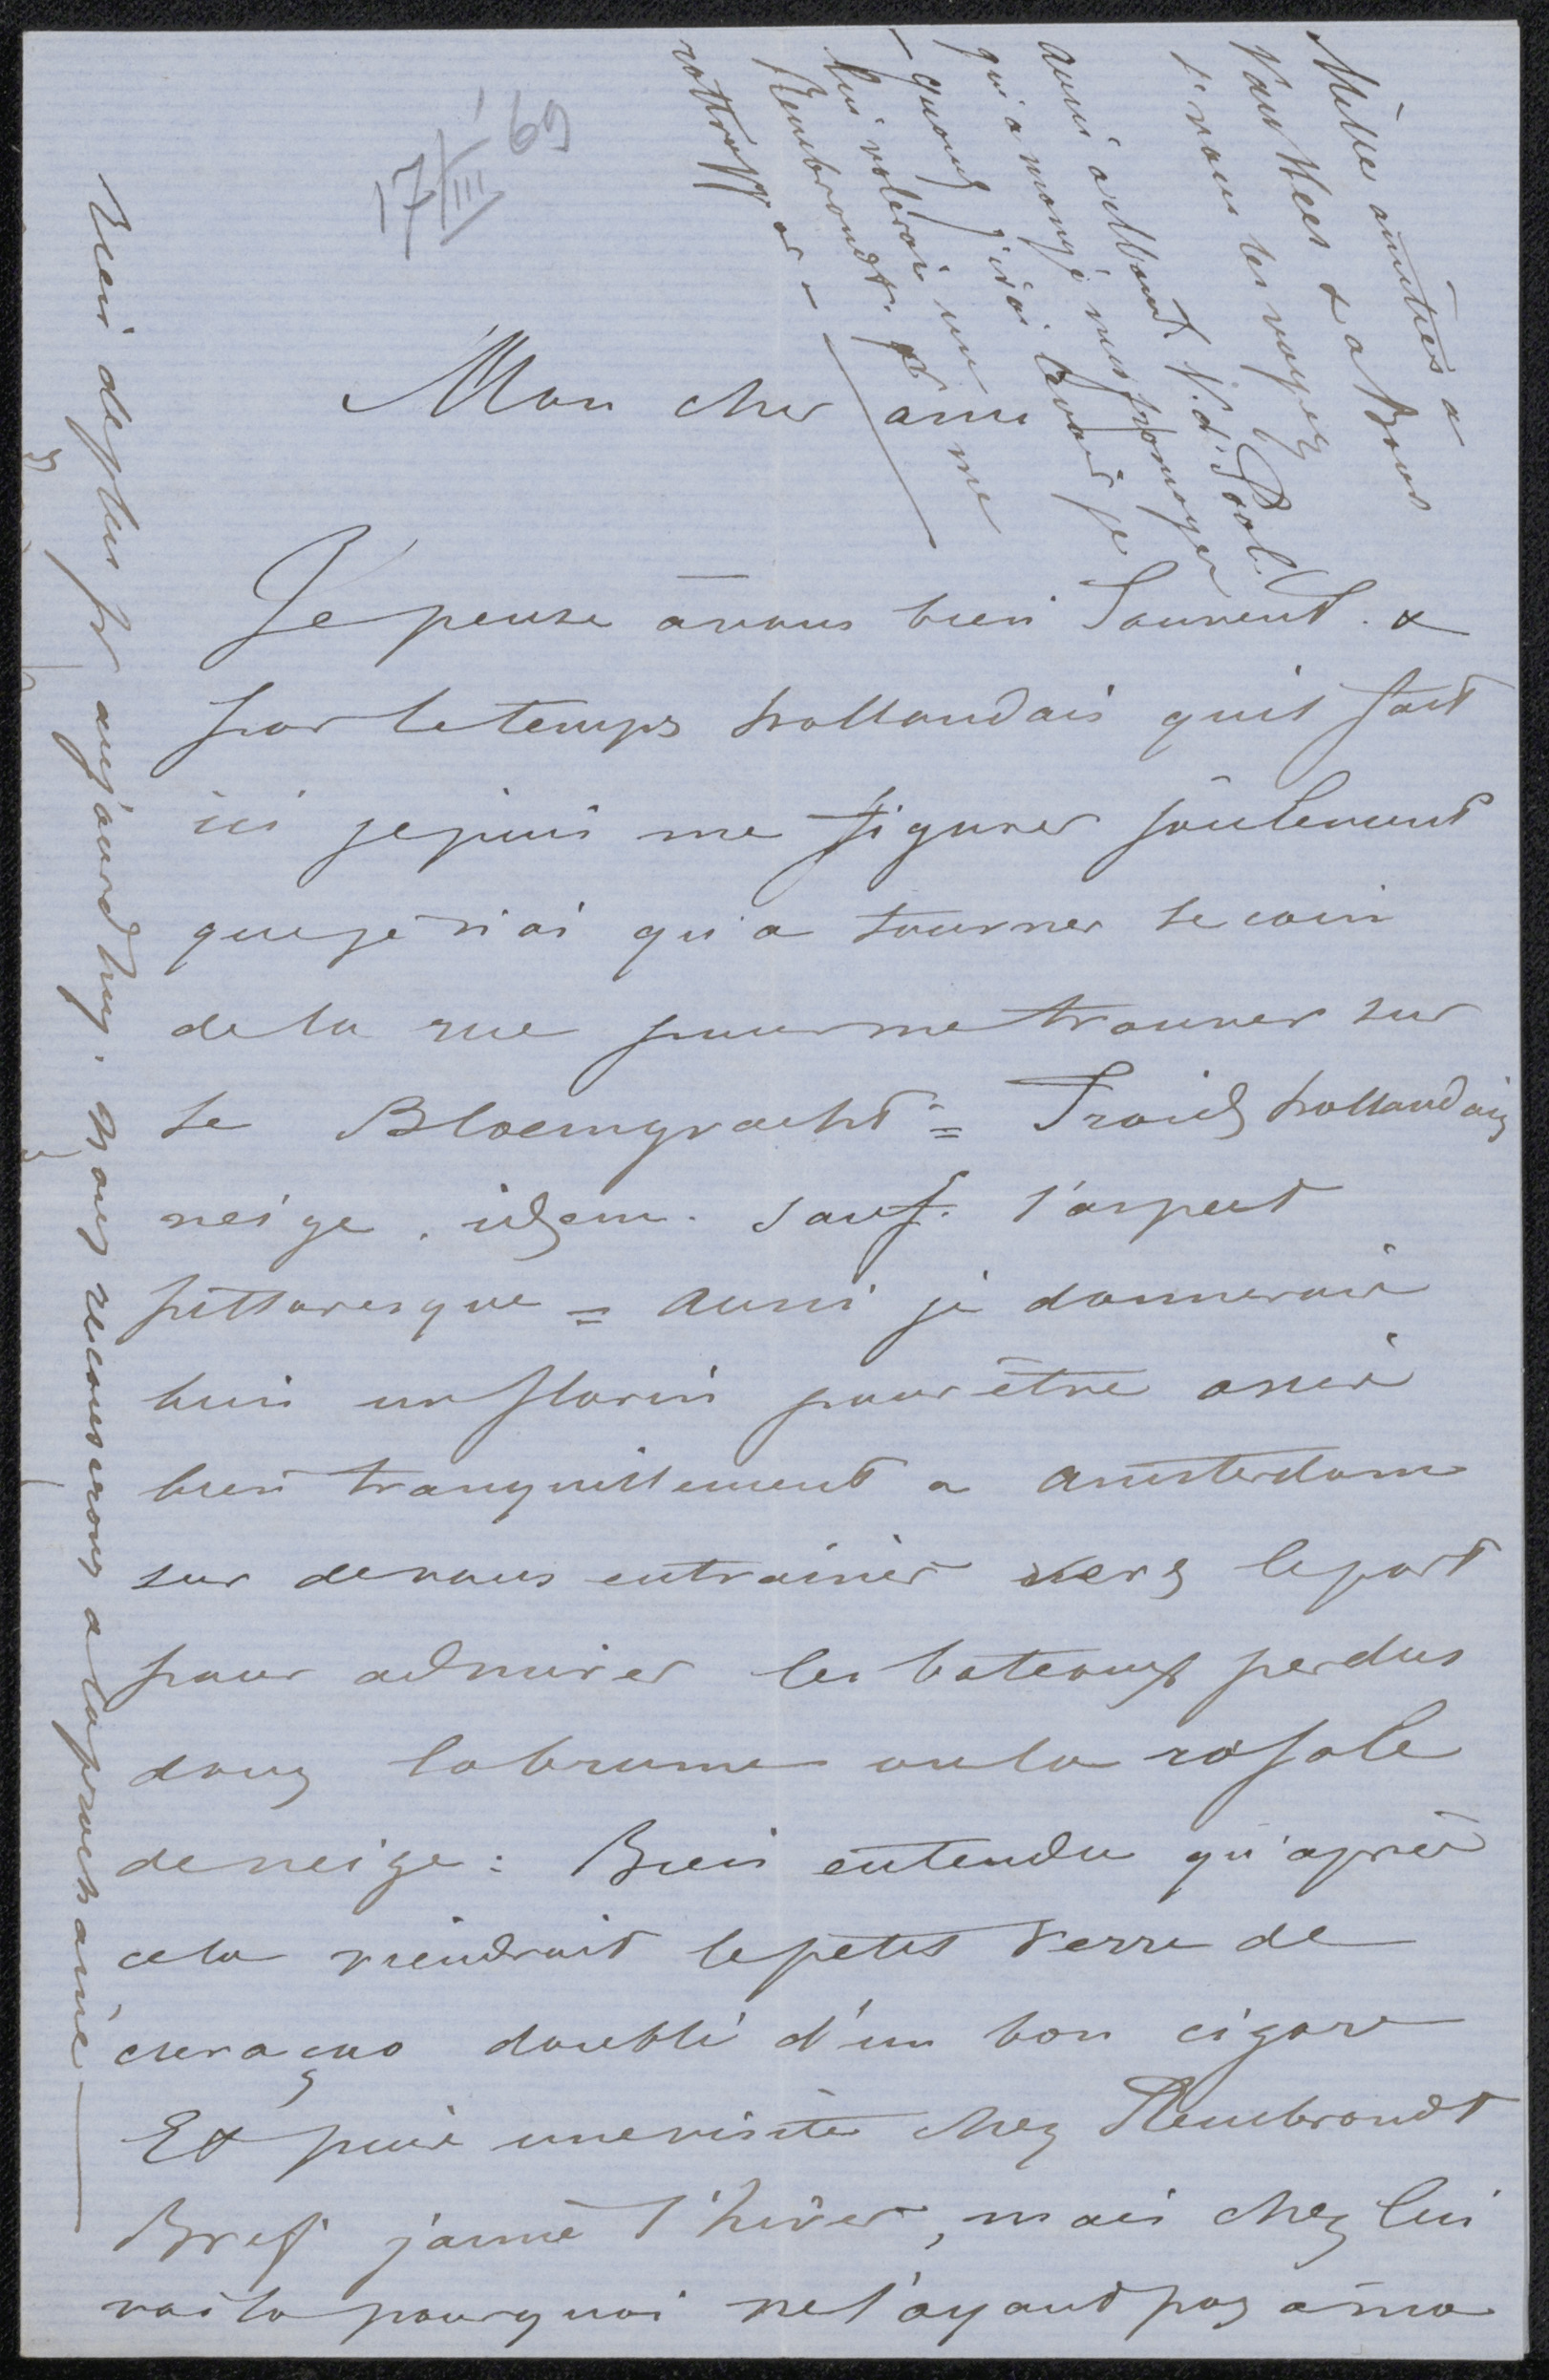 17/III '69
Mille amitiés à
Van Hees & a Bous
si vous les voyez
aussi
qui a mangé mes fromages
- quand j'irai je
lui volerai un
Rembrandt. pr me
rattrapper -
Mon cher ami
Je pense à vous bien souvent. &
par le temps hollandais quil fait
ici je puis me figurer seulement
que je n'ai qu'a tourner le coin
de la rue pour me trouver sur
le Bloemgracht = Froid hollandais
neige, idem. sauf. l'aspect
pittoresque = aussi je donnerais
bien un florin pour être assis
bien tranquillement a Amsterdam
sur de vous entrainer vers le port
pour admirer les bateaux perdus
dans la brume ou la rafale
de neige : Bien entendu qu'après
cela viendrait le petit verre de
curaçao doublé d'un bon cigare
Et puis une visite chez Rembrandt
Bref j'aime l'hiver, mais chez lui
voila pourquoi ne l'ayant pas à ma
Rien de plus pr aujourd'huy. nous recauserons a la prochaine